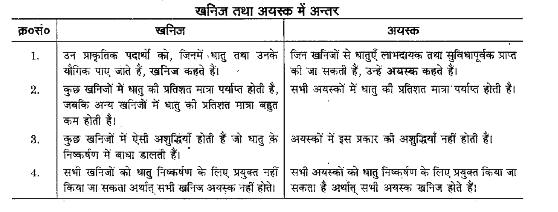 खनिज तथा अयस्क में अन्तर
क्र०सं० खनिज अयस्क
1. उन प्राकृतिक पदार्थों को, जिनमें धातु तथा उनके जिन खनिजों से धातुएँ लाभदायक तथा सुविधापूर्वक प्राप्त
यौगिक पाए जाते हैं, खनिज कहते हैं। की जा सकती हैं, उन्हें अयस्क कहते हैं।
2. कुछ खनिजों में धातु की प्रतिशत मात्रा पर्याप्त होती है, सभी अयस्कों में धातु की प्रतिशत मात्रा पर्याप्त होती है।
जबकि अन्य खनिजों में धातु की प्रतिशत मात्रा बहुत
कम होती है।
3. कुछ खनिजों में ऐसी अशुद्धियाँ होती हैं जो धातु के अयस्कों में इस प्रकार की अशुद्धियाँ नहीं होती हैं।
निष्कर्षण में बाधा डालती हैं।
4. सभी खनिजों को धातु निष्कर्षण के लिए प्रयुक्त नहीं सभी अयस्कों को धातु निष्कर्षण के लिए प्रयुक्त किया जा
किया जा सकता अर्थात् सभी खनिज अयस्क नहीं होते। सकता है अर्थात् सभी अयस्क खनिज होते हैं।